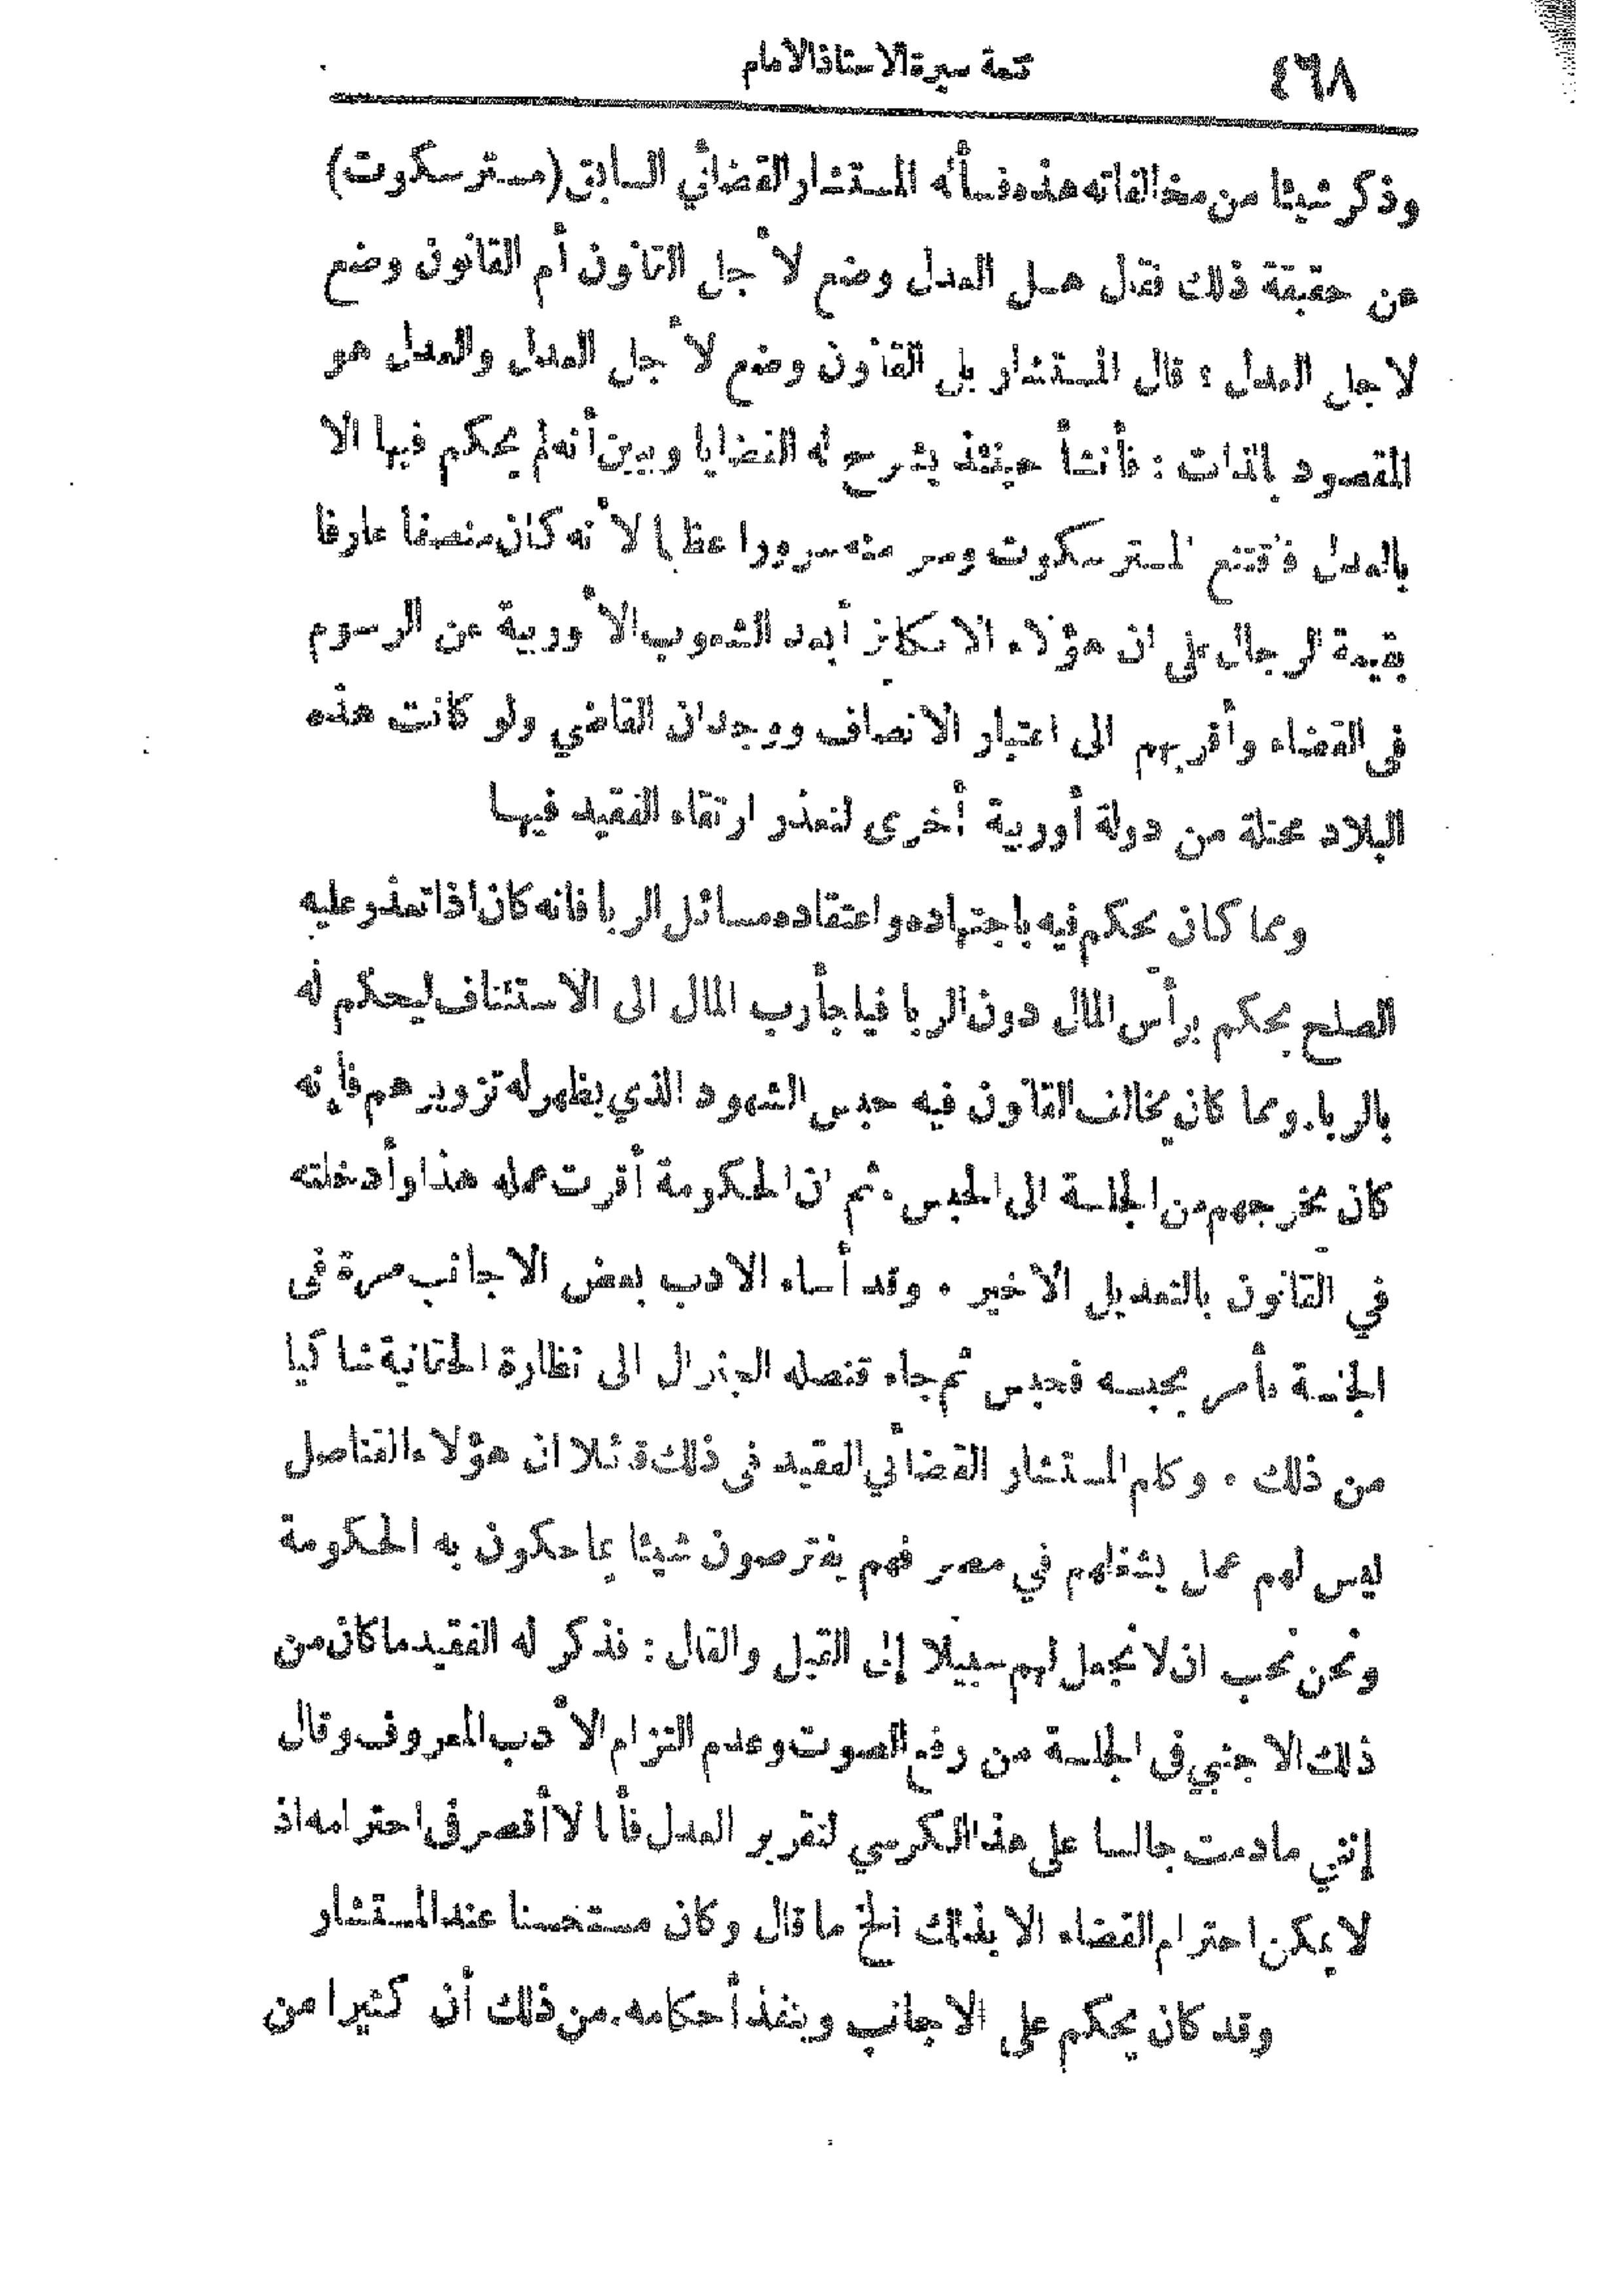 ٤٦٨ تتمة سيرة الاستاذ الامام
وذكر شيئا من مخالفاته هذه فسأله المستشار القضائي السابق (مستر سكوت)
عن حقيقة ذلك فقال هل العدل وضع لأجل القانون أم القانون وضع
لاجل العدل ؟ قال المستشار بل القانون وضع لأجل العدل والعدل هو
المقصود بالذات : فأنشأ حينئذ يشرح له القضايا ويبين أنه لم يحكم فيها الا
بالعدل فاقتنع المستر سكوت وسر منه سرورا عظيما لأنه كان منصفا عارفا
بقيمة الرجال على ان هؤلاء الانكليز أبعد الشعوب الأوربية عن الرسوم
في القضاء وأقربهم الى اعتبار الانصاف ووجدان القاضي ولو كانت هذه
البلاد محتلة من دولة أوربية أخرى لتعذر ارتقاء الفقيد فيها
ومما كان يحكم فيه باجتهاده واعتقاده مسائل الربا فانه كان اذا تعذر عليه
الصلح يحكم برأس المال دون الربا فيلجأ رب المال الى الاستئناف ليحكم له
بالربا. ومما كان يخالف القانون فيه حبس الشهود الذي يظهر له تزويرهم فإنه
كان يخرجهم من الجلسة الى الحبس . ثم ان الحكومة أقرت عمله هذا وأدخلته
في القانون بالتعديل الاخير . وقد أساء الادب بعض الاجانب مرة في
الجلسة فأمر بحبسه فحبس ثم جاء قنصله الجنرال الى نظارة الحقانية شاكيا
من ذلك . وكلم المستشار القضائي الفقيد في ذلك قائلا ان هؤلاء القناصل
ليس لهم عمل يشغلهم في مصر فهم يفترصون شيئا يماحكون به الحكومة
ونحن نحب ان لا نجعل لهم سبيلا إلى القيل والقال : فذكر له الفقيد ما كان من
ذلك الاجنبي في الجلسة من رفع الصوت وعدم التزام الأدب المعروف وقال
إنني ما دمت جالسا على هذا الكرسي لتقرير العدل فأنا لا أقصر في احترامه اذ
لا يمكن احترام القضاء الا بذلك الخ ما قال وكان مستحسنا عند المستشار
وقد كان يحكم على الاجانب وينفذ أحكامه. من ذلك أن كثيرا من